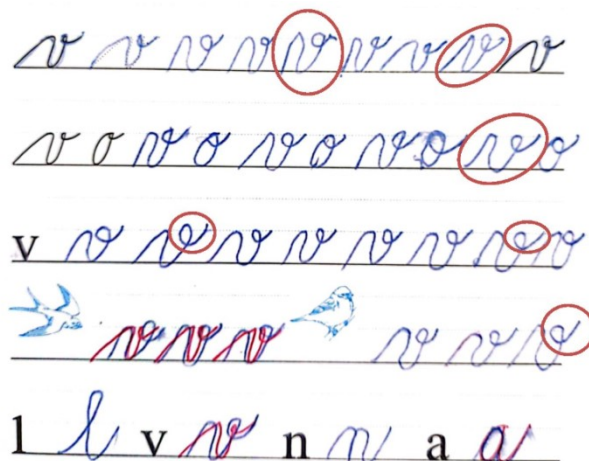 v v v v v v v v v
v o v o v o v o v o
v v v v v v v v v
v v v v v v
l l v v n n a a